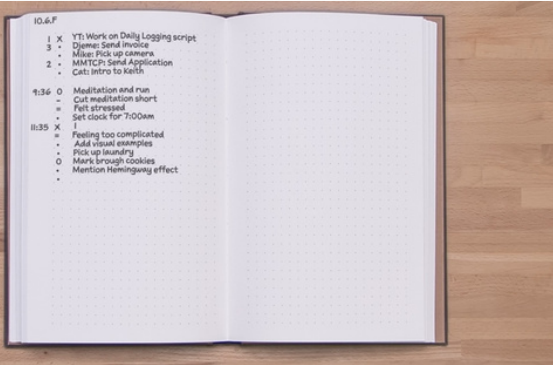 10.6.F
1 X YT: Work on Daily Logging script
3 • Djeme: Send invoice
• Mike: Pick up camera
2 • MMTCP: Send Application
• Cat: Intro to Keith
9:36 O Meditation and run
– Cut meditation short
= Felt stressed
• Set clock for 7:00am
11:35 X 1
= Feeling too complicated
• Add visual examples
• Pick up laundry
O Mark brough cookies
• Mention Hemingway effect
•